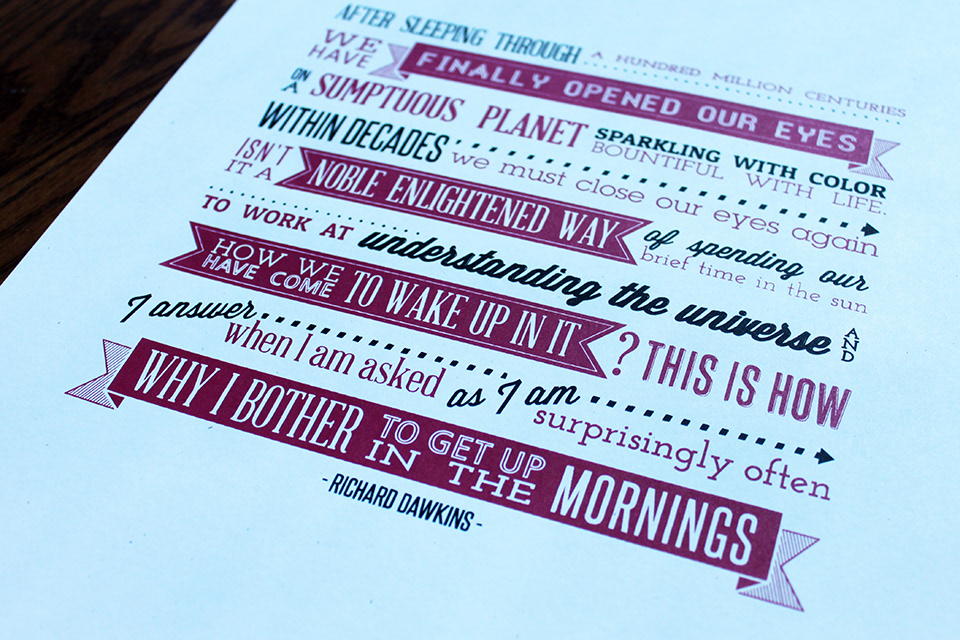 AFTER SLEEPING THROUGH A HUNDRED MILLION CENTURIES
WE HAVE FINALLY OPENED OUR EYES
ON A SUMPTUOUS PLANET SPARKLING WITH COLOR
BOUNTIFUL WITH LIFE.
WITHIN DECADES we must close our eyes again
ISN'T IT A NOBLE ENLIGHTENED WAY of spending our
brief time in the sun
TO WORK AT understanding the universe AND
HOW WE HAVE COME TO WAKE UP IN IT ? THIS IS HOW
I answer
when I am asked as I am
surprisingly often
WHY I BOTHER TO GET UP IN THE MORNINGS
- RICHARD DAWKINS -